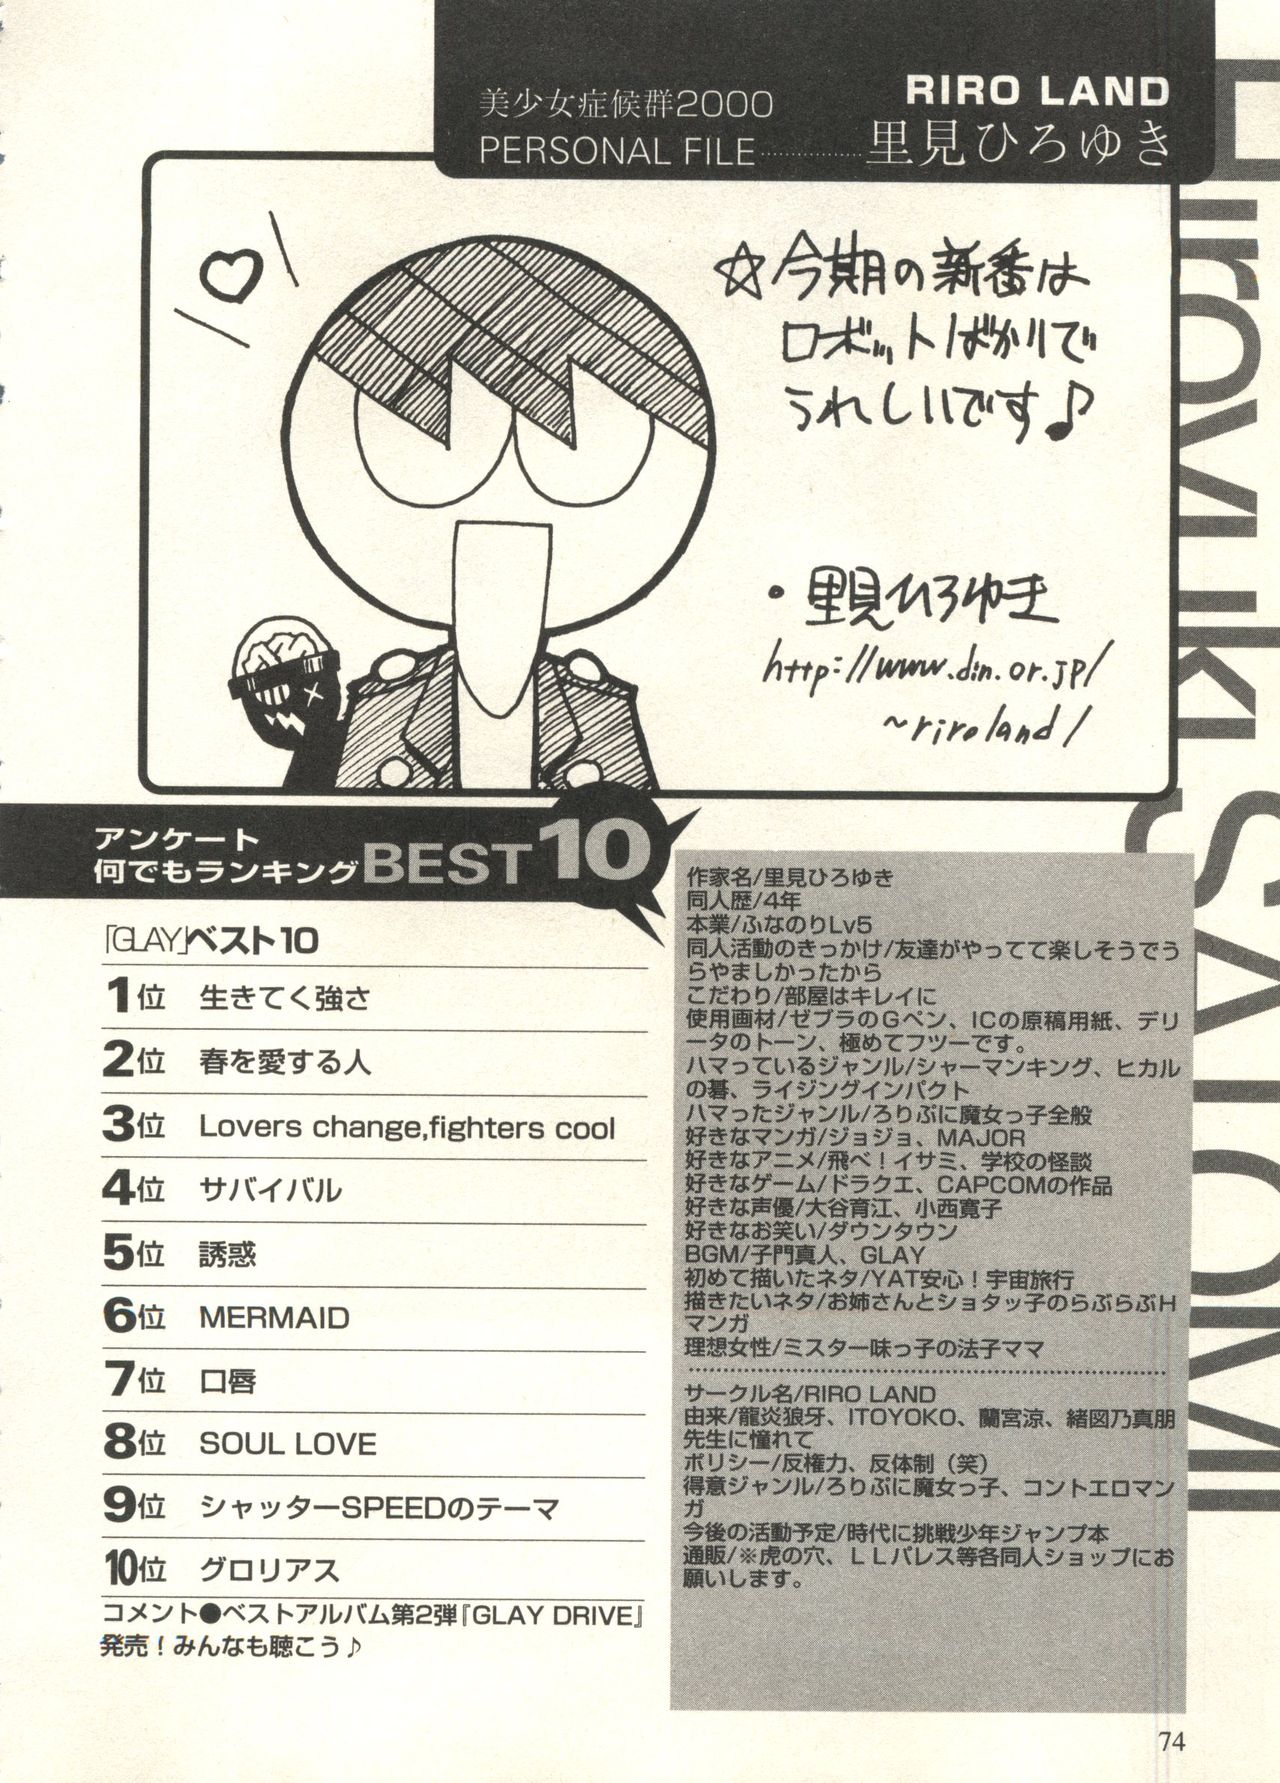 RIRO LAND
美少女症候群2000
PERSONAL FILE
里見ひろゆき
☆今期の新番は
ロボットばかりで
うれしいです♪
・里見ひろゆき
http://www.din.or.jp/
~riroland/
Hiroyuki SATOMI
アンケート
何でもランキング
BEST10
「GLAY」ベスト10
1位 生きてく強さ
2位 春を愛する人
3位 Lovers change,fighters cool
4位 サバイバル
5位 誘惑
6位 MERMAID
7位 口唇
8位 SOUL LOVE
9位 シャッターSPEEDのテーマ
10位 グロリアス
コメント●ベストアルバム第2弾『GLAY DRIVE』
発売！みんなも聴こう♪
作家名/里見ひろゆき
同人歴/4年
本業/ふなのりLv5
同人活動のきっかけ/友達がやってて楽しそうでう
らやましかったから
こだわり/部屋はキレイに
使用画材/ゼブラのGペン、ICの原稿用紙、デリ
ータのトーン、極めてフツーです。
ハマっているジャンル/シャーマンキング、ヒカル
の碁、ライジングインパクト
ハマったジャンル/ろりぷに魔女っ子全般
好きなマンガ/ジョジョ、MAJOR
好きなアニメ/飛べ！イサミ、学校の怪談
好きなゲーム/ドラクエ、CAPCOMの作品
好きな声優/大谷育江、小西寛子
好きなお笑い/ダウンタウン
BGM/子門真人、GLAY
初めて描いたネタ/YAT安心！宇宙旅行
描きたいネタ/お姉さんとショタッ子のらぶらぶH
マンガ
理想女性/ミスター味っ子の法子ママ
サークル名/RIRO LAND
由来/龍炎狼牙、ITOYOKO、蘭宮涼、緒図乃真朋
先生に憧れて
ポリシー/反権力、反体制（笑）
得意ジャンル/ろりぷに魔女っ子、コントエロマン
ガ
今後の活動予定/時代に挑戦少年ジャンプ本
通販/※虎の穴、LLパレス等各同人ショップにお
願いします。
74